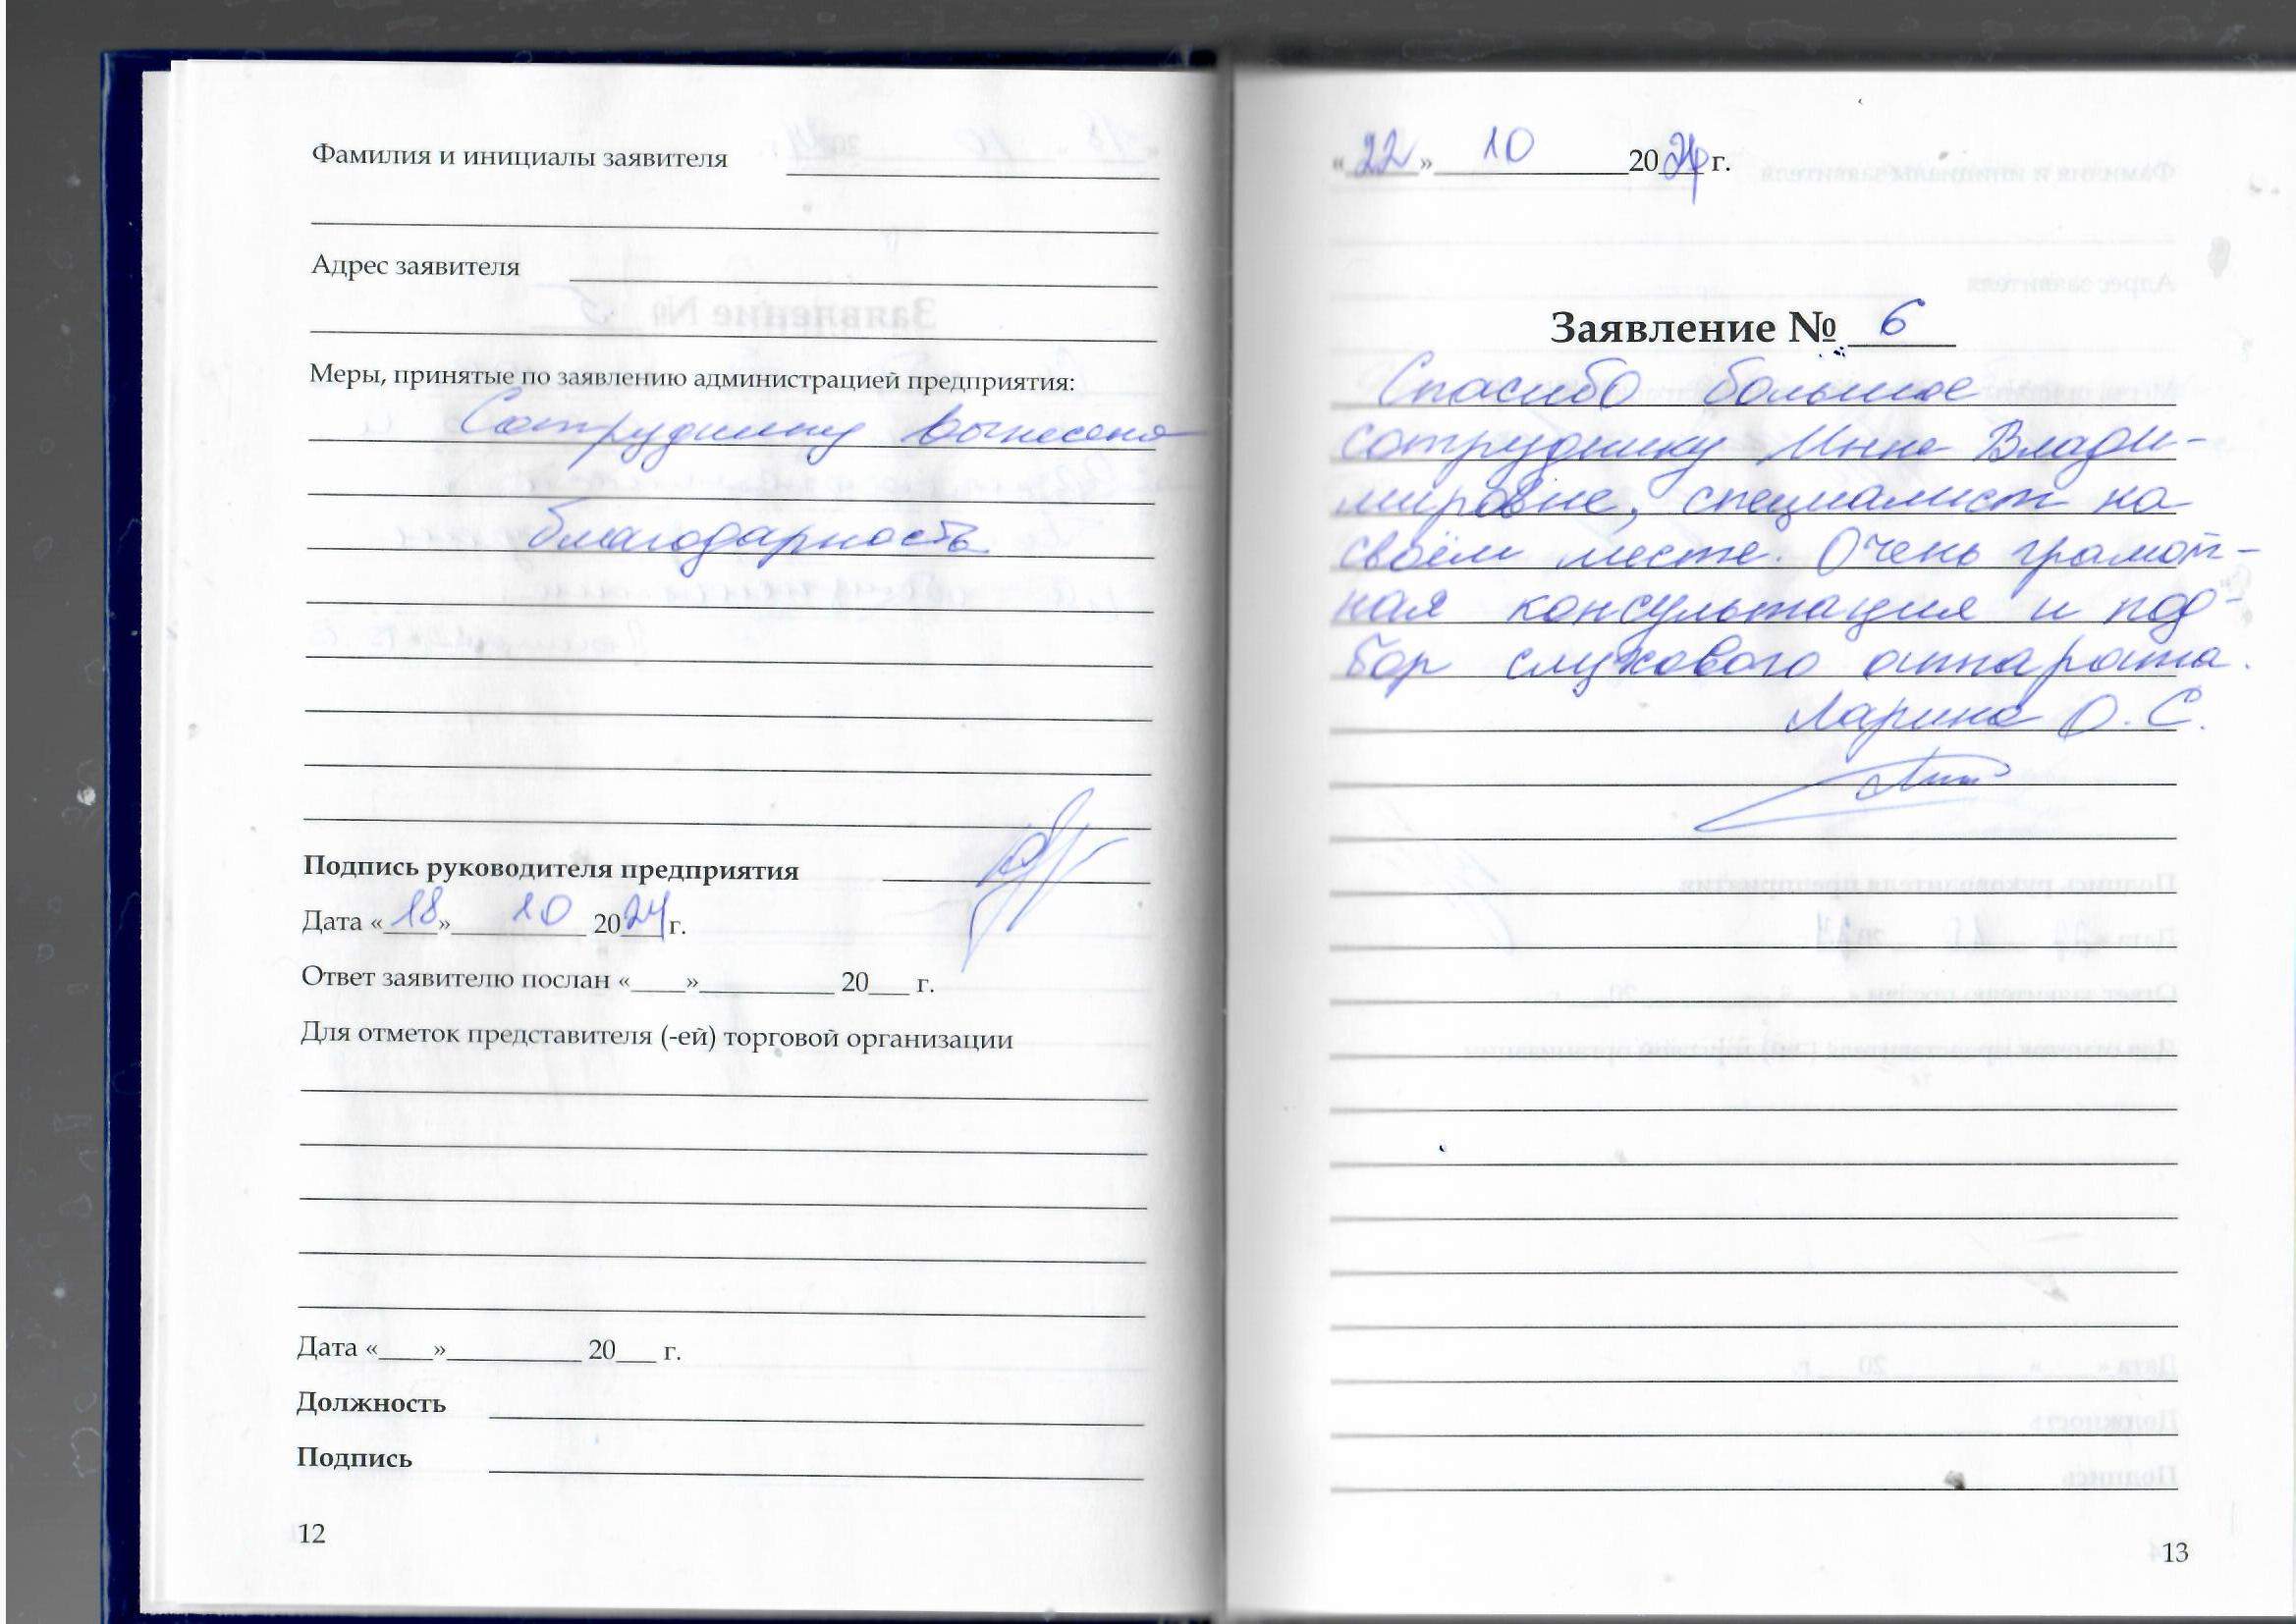 Фамилия и инициалы заявителя
Адрес заявителя
Меры, принятые по заявлению администрацией предприятия:
Сотруднику вынесена
благодарность
Подпись руководителя предприятия
Дата «18» 10 2024 г.
Ответ заявителю послан «____»__________ 20___ г.
Для отметок представителя (-ей) торговой организации
Дата «____»__________ 20___ г.
Должность
Подпись
12
«22» 10 2024 г.
Заявление № 6
Спасибо большое
сотруднику Инне Влади-
мировне, специалист на
своём месте. Очень грамот-
ная консультация и под-
бор слухового аппарата.
Ларина О.С.
13